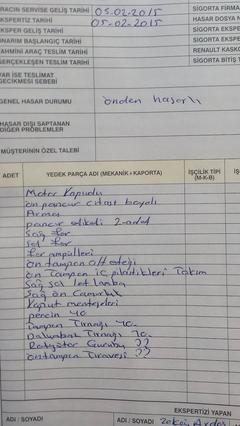 ARACIN SERVİSE GELİŞ TARİHİ 05-02-2015 SİGORTA FİRMA
EKSPERTİZ TARİHİ 05-02-2015 HASAR DOSYA
EKSPER GELİŞ TARİHİ SİGORTA EKSPE
ONARIM BAŞLANGIÇ TARİHİ SİGORTA EKSPE
TAHMİNİ ARAÇ TESLİM TARİHİ RENAULT KASKO
GERÇEKLEŞEN TESLİM TARİHİ SİGORTA BİTİŞ T
VAR İSE TESLİMAT
GECİKMESİ SEBEBİ
GENEL HASAR DURUMU önden hasarlı
HASAR DIŞI SAPTANAN
DİĞER PROBLEMLER
MÜŞTERİNİN ÖZEL TALEBİ
ADET YEDEK PARÇA ADI (MEKANİK + KAPORTA) İŞÇİLİK TİPİ
(M-K-B)
Motor Kaputu
ön pancur çıtası boyalı
Arma
pancur etiketi 2-adet
Sağ far
Sol far
far ampülleri
ön tampon alt eteği
ön Tampon iç plastikleri Takım
Sağ sol
Sağ ön Çamurluk
Kaput menteşeleri
perçin 40
Tampon Tırnağı 40
Davlumbaz Tırnağı 10
Radyatör Gurubu ??
ön tampon Traversi ??
EKSPERTİZİ YAPAN
ADI / SOYADI ADI / SOYADI